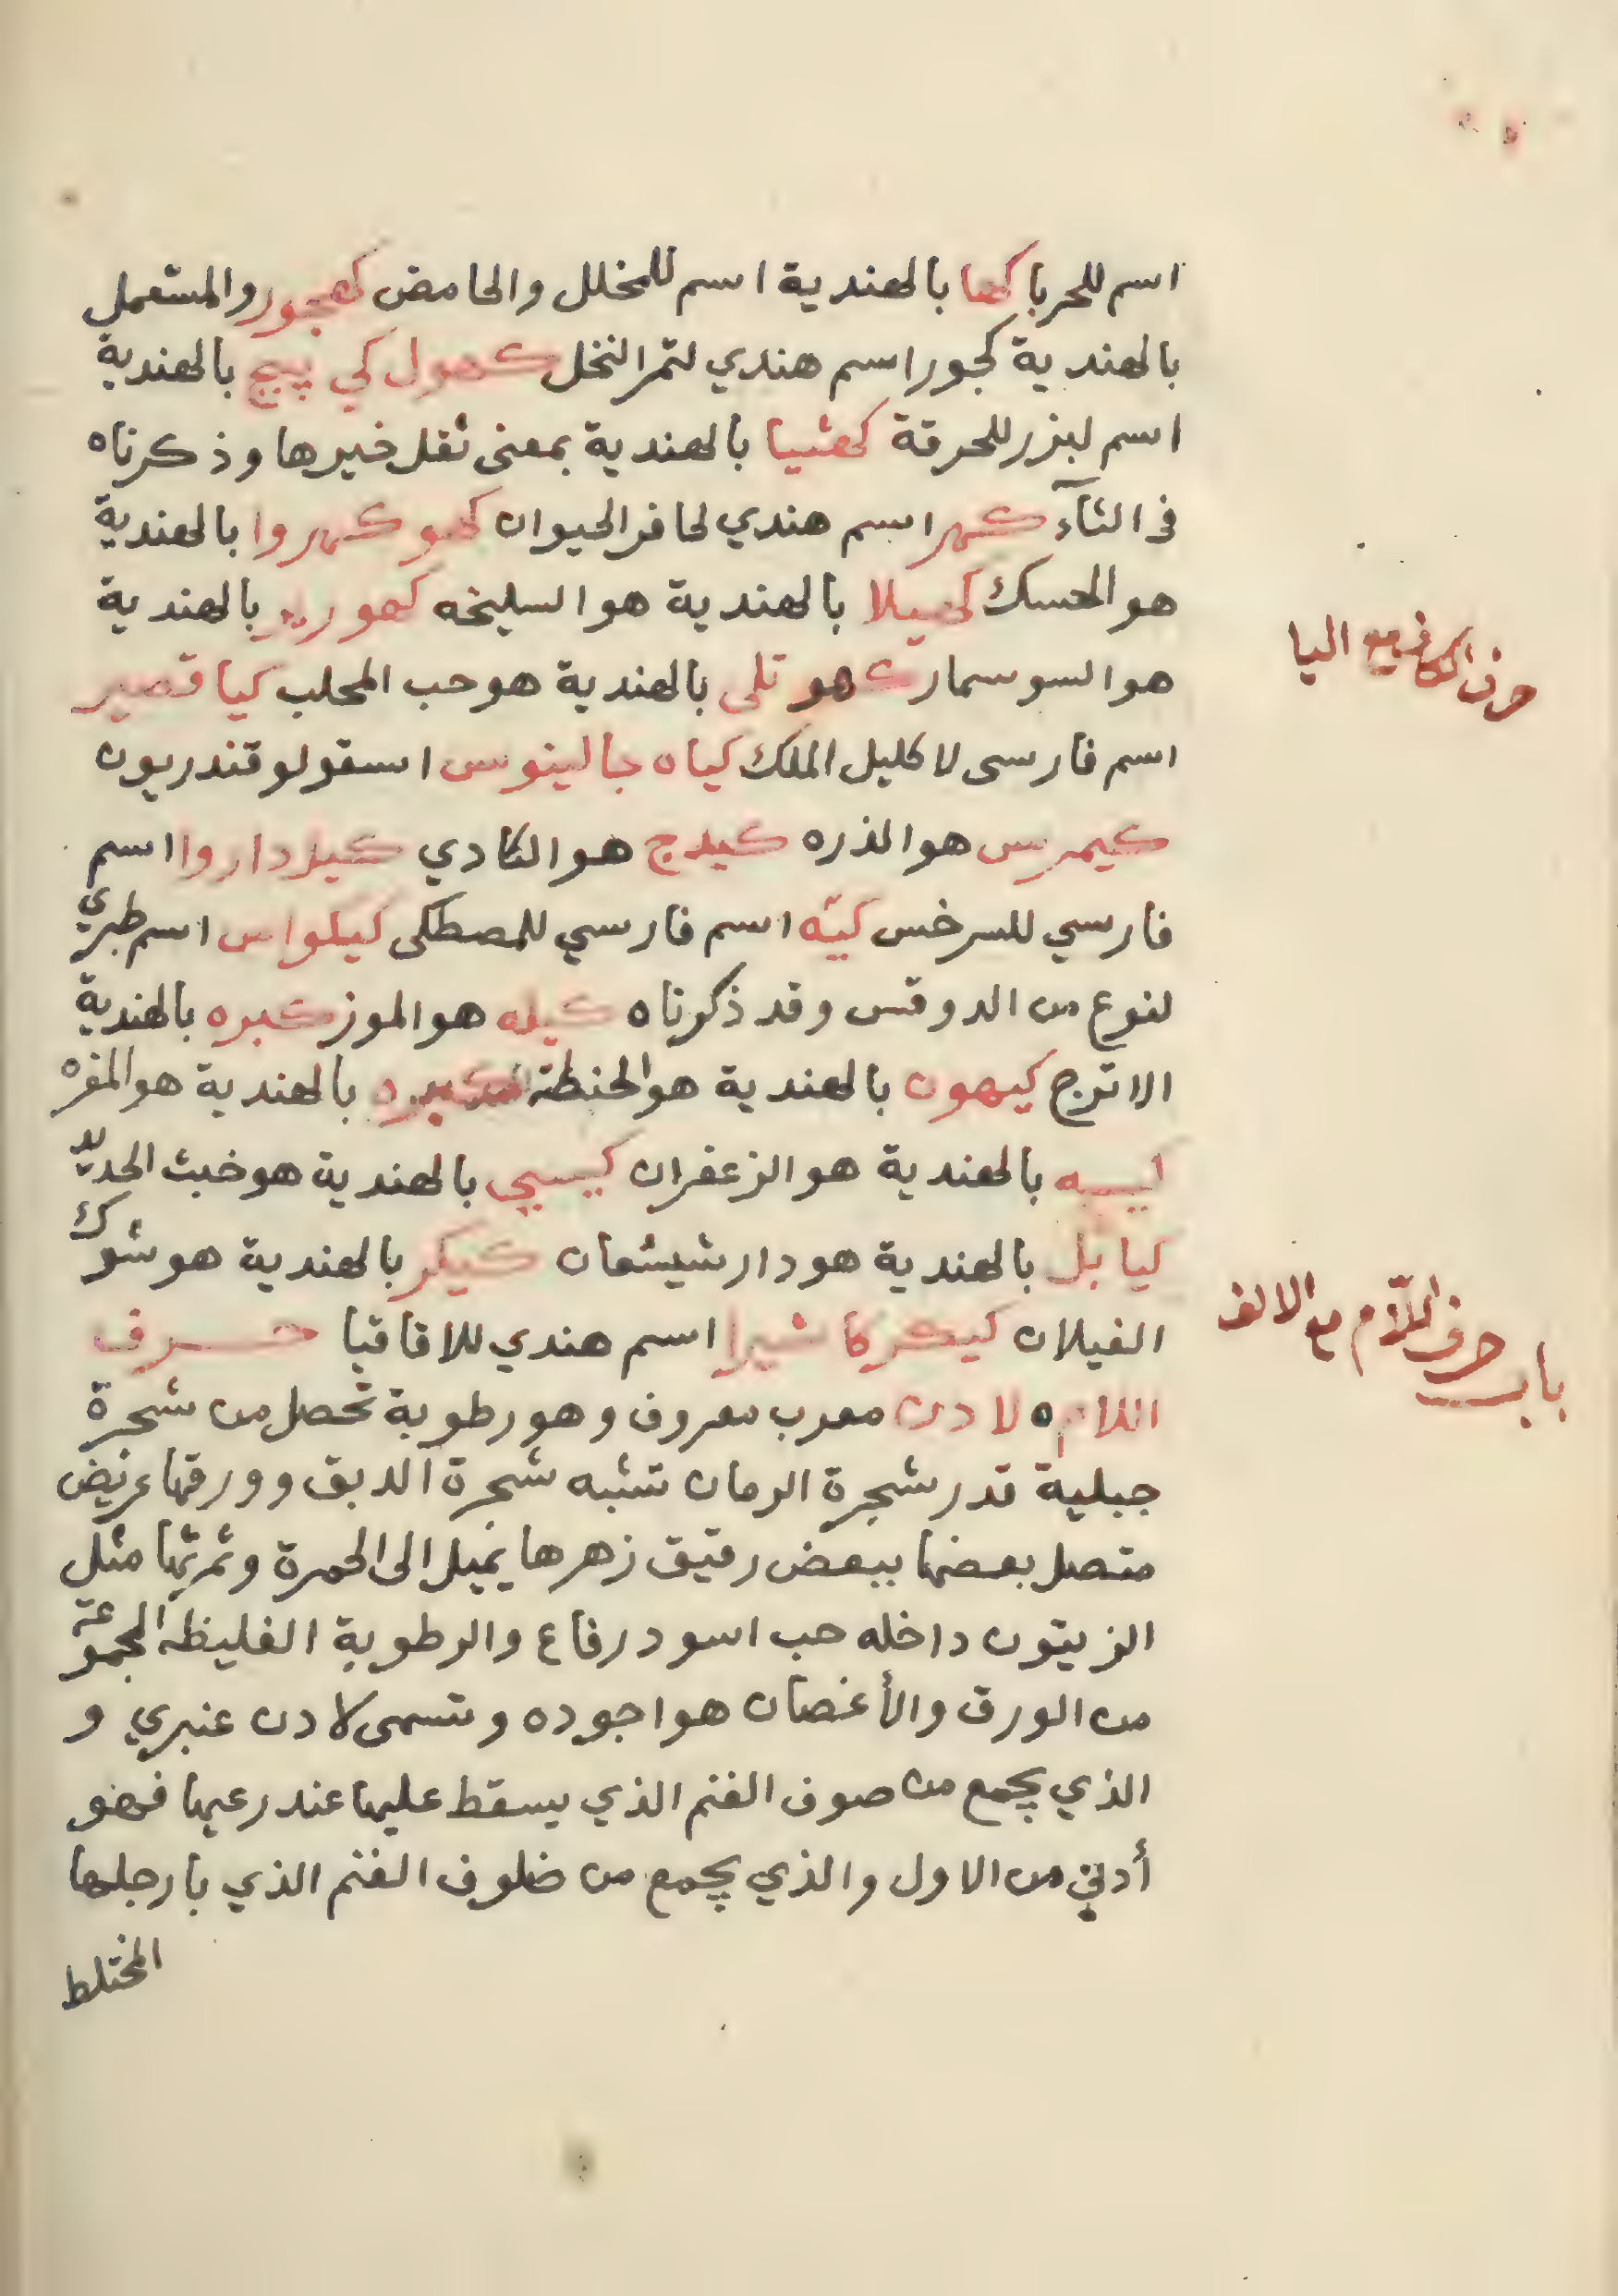 اسم للحربا كها بالهندية اسم للمخلل والحامض كهجور والمستعمل
بالهندية كجور اسم هندي لتمر النخل كهول كي بيج بالهندية
اسم لبزر للحرقة كهثيا بالهندية بمعنى ثقل خيرها وذكرناه
فى الثآء كهر اسم هندي لحافر الحيوان كهو كهروا بالهندية
هو الحسك كهيلا بالهندية هو السليخه كهور بالهندية
هو السوسمار كهو تلى بالهندية هو حب المحلب كيا قصير
اسم فارسى لاكليل الملك كياه جالينوس اسقولوقندريون
كيمرس هو الذره كيدج هو الكادي كيل داروا اسم
فارسي للسرخس كيّه اسم فارسي للمصطكى كيلواس اسم طبري
لنوع من الدوقس وقد ذكرناه كيله هو الموز كبره بالهندية
الاترج كيهون بالهندية هو الحنطة بالهندية هو المغره
كيسه بالهندية هو الزعفران كيسي بالهندية هو خبث الحديد
كيا بل بالهندية هو دار شيشعان كيكر بالهندية هو شوك
الغيلان كيكر كا شيرا اسم هندي للاقاقيا حرف
اللام ه لادن معرب معروف وهو رطوبة تحصل من شجرة
جبلية قدر شجرة الرمان تشبه شجرة الدبق وورقها عريض
متصل بعضها ببعض رقيق زهرها يميل الى الحمرة وثمرتها مثل
الزيتون داخله حب اسود رفاع والرطوبة الغليظه المجموعة
من الورق والأغصان هو اجوده وتسمى لادن عنبري و
الذي يجمع من صوف الغنم الذي يسقط عليها عند رعيها فهو
أدنى من الاول والذي يجمع من ضلوف الغنم الذي بارجلها
المختلط
حرف الكاف مع اليا
باب حرف اللّام مع الالف